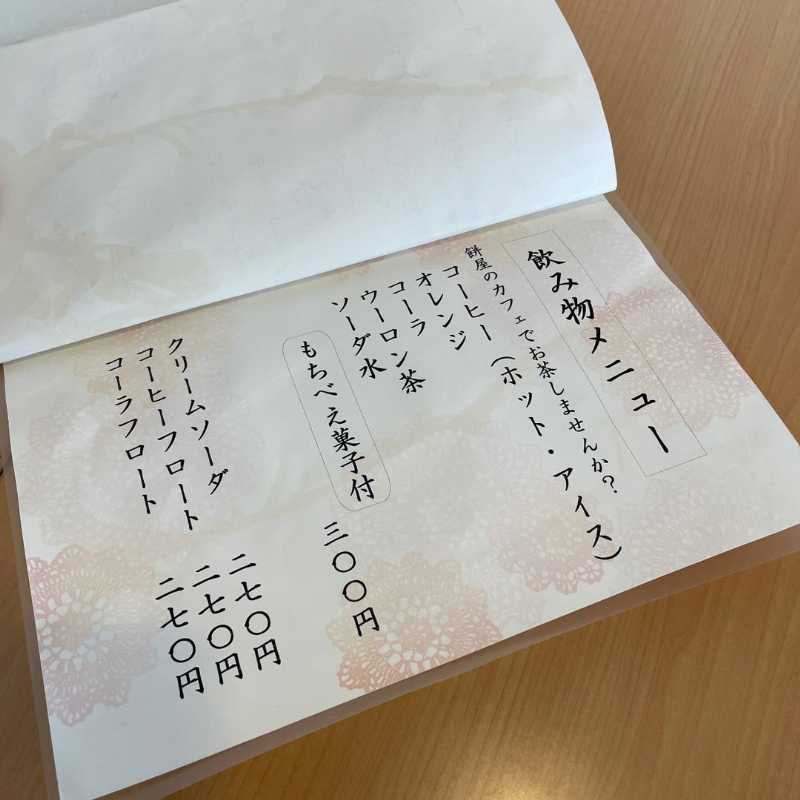 飲み物メニュー
餅屋のカフェでお茶しませんか？
コーヒー（ホット・アイス）
オレンジ
コーラ
ウーロン茶
ソーダ水
もちべえ菓子付 三〇〇円
クリームソーダ 二七〇円
コーヒーフロート 二七〇円
コーラフロート 二七〇円